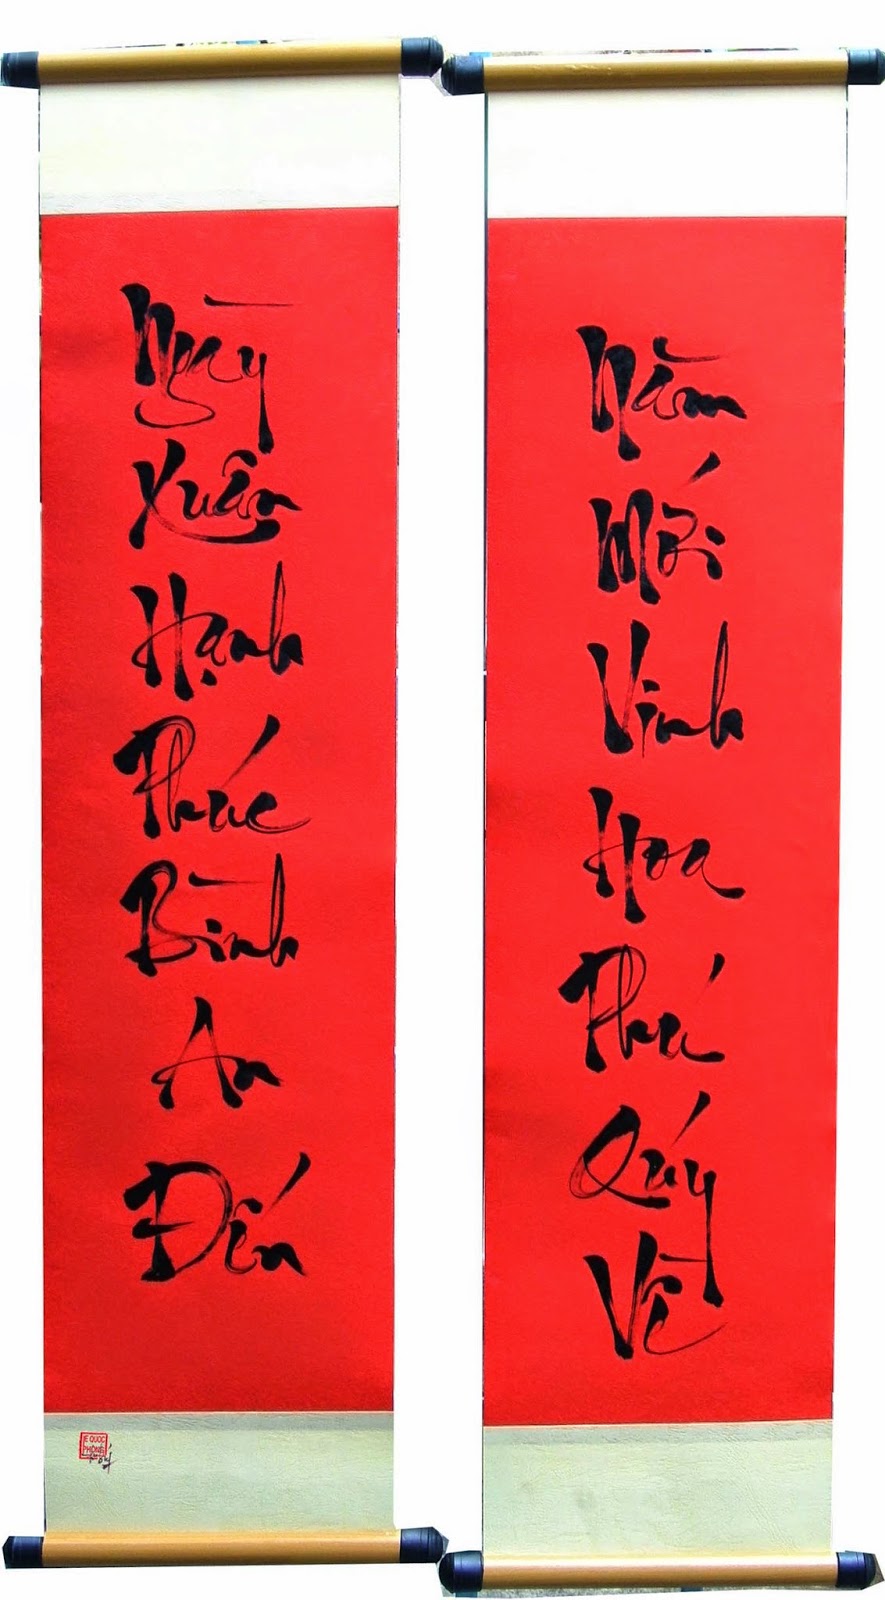 Ngày
Xuân
Hạnh
Phúc
Bình
An
Đến
Năm
Mới
Vinh
Hoa
Phú
Quý
Về
QUỐC
PHONG